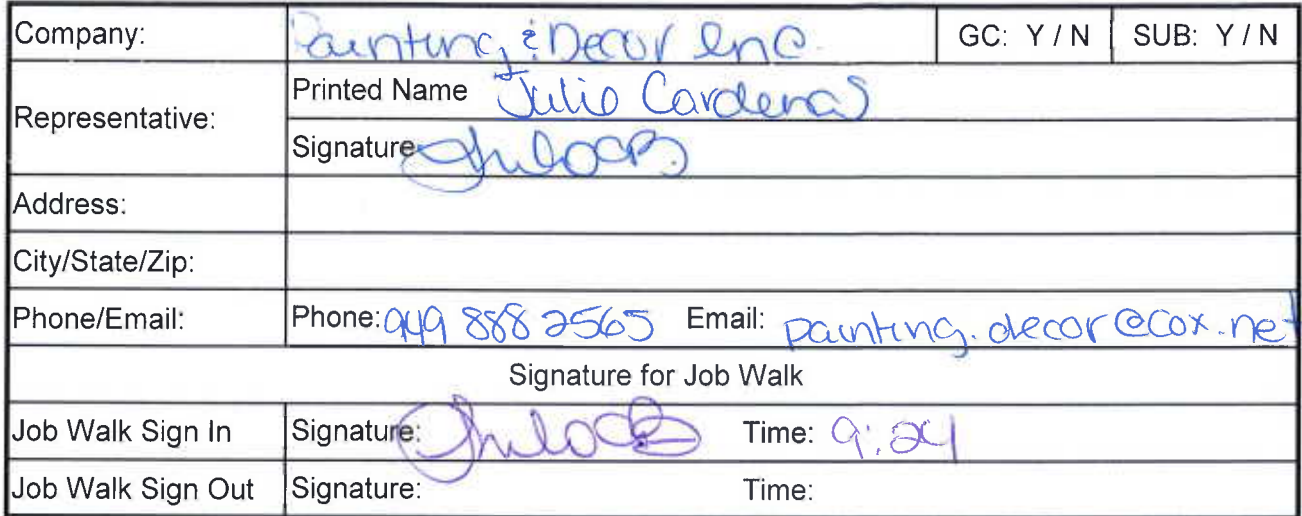 Company: Painting & Decor Inc. GC: Y / N SUB: Y / N
Representative: Printed Name Julio Cardenas
Signature
Address:
City/State/Zip:
Phone/Email: Phone: 949 888 2565 Email: painting.decor@cox.net
Signature for Job Walk
Job Walk Sign In Signature: Time: 9:24
Job Walk Sign Out Signature: Time: